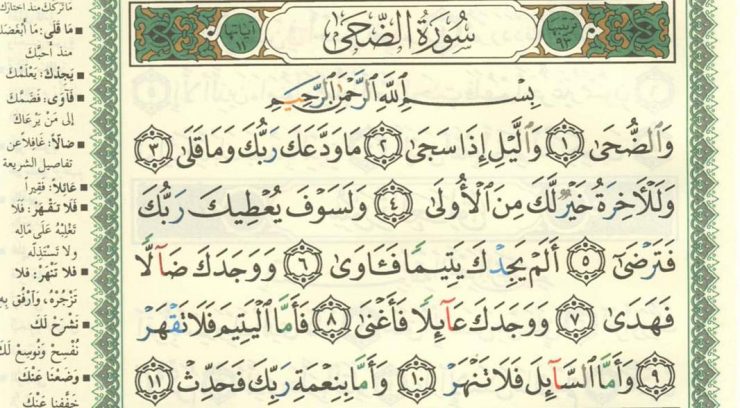 ترتيبها ٩٣
سُورَةُ الضُّحَىٰ
آياتها ١١
بِسْمِ اللَّهِ الرَّحْمَٰنِ الرَّحِيمِ
وَالضُّحَىٰ ١ وَاللَّيْلِ إِذَا سَجَىٰ ٢ مَا وَدَّعَكَ رَبُّكَ وَمَا قَلَىٰ ٣
وَلَلْآخِرَةُ خَيْرٌ لَّكَ مِنَ الْأُولَىٰ ٤ وَلَسَوْفَ يُعْطِيكَ رَبُّكَ
فَتَرْضَىٰ ٥ أَلَمْ يَجِدْكَ يَتِيمًا فَـَٔاوَىٰ ٦ وَوَجَدَكَ ضَآلًّا
فَهَدَىٰ ٧ وَوَجَدَكَ عَآئِلًا فَأَغْنَىٰ ٨ فَأَمَّا الْيَتِيمَ فَلَا تَقْهَرْ
٩ وَأَمَّا السَّآئِلَ فَلَا تَنْهَرْ ١٠ وَأَمَّا بِنِعْمَةِ رَبِّكَ فَحَدِّثْ ١١
مَا تَرَكَكَ مُنذُ اختارك
■ مَا قَلَى: مَا أَبْغَضَكَ
منذ أحبَّكَ
■ يَجِدْكَ: يَعْلَمْكَ
■ فَآوَى: فَضَمَّكَ
إلى مَنْ يَرْعَاكَ
■ ضَالًّا: غَافِلاً عن
تفاصيل الشريعة
■ عَائِلاً: فَقِيراً
■ فَلَا تَقْهَرْ: فَلَا
تَغْلِبْهُ عَلَى مَالِهِ
ولا تَسْتَذِلَّه
■ فَلا تَنْهَرْ: فلا
تَزْجُرْهُ، وَارْفُق بِهِ
■ نَشْرَحْ لَكَ
نُفْسِحْ وَنُوسِعْ لَكَ
■ وَضَعْنَا عَنْكَ
خَفَّفنا عَنْكَ